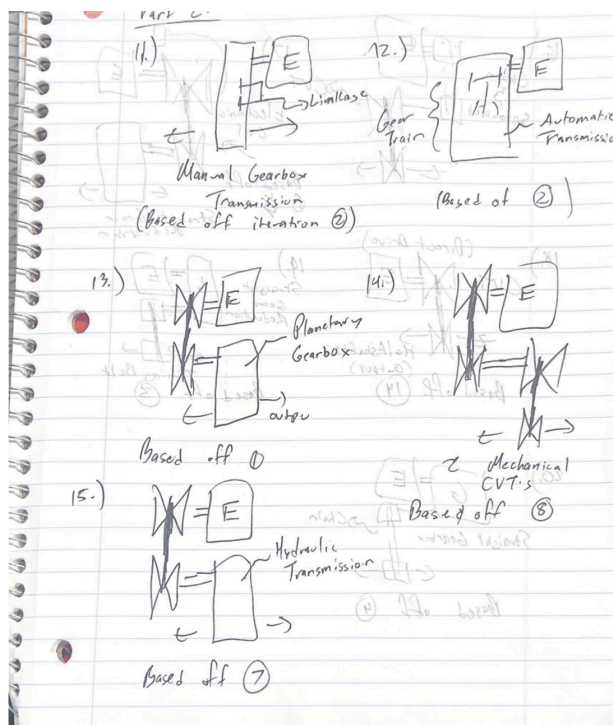 Part 2.
11.)
E
Linkage
Manual Gearbox
Transmission
(Based off iteration ②)
12.)
E
Gear
Train
Automatic
Transmission
(Based of ②)
13.)
E
Planetary
Gearbox
output
Based off ①
14.)
E
2 Mechanical
CVT's
Based off ⑧
15.)
E
Hydraulic
Transmission
Based off ⑦